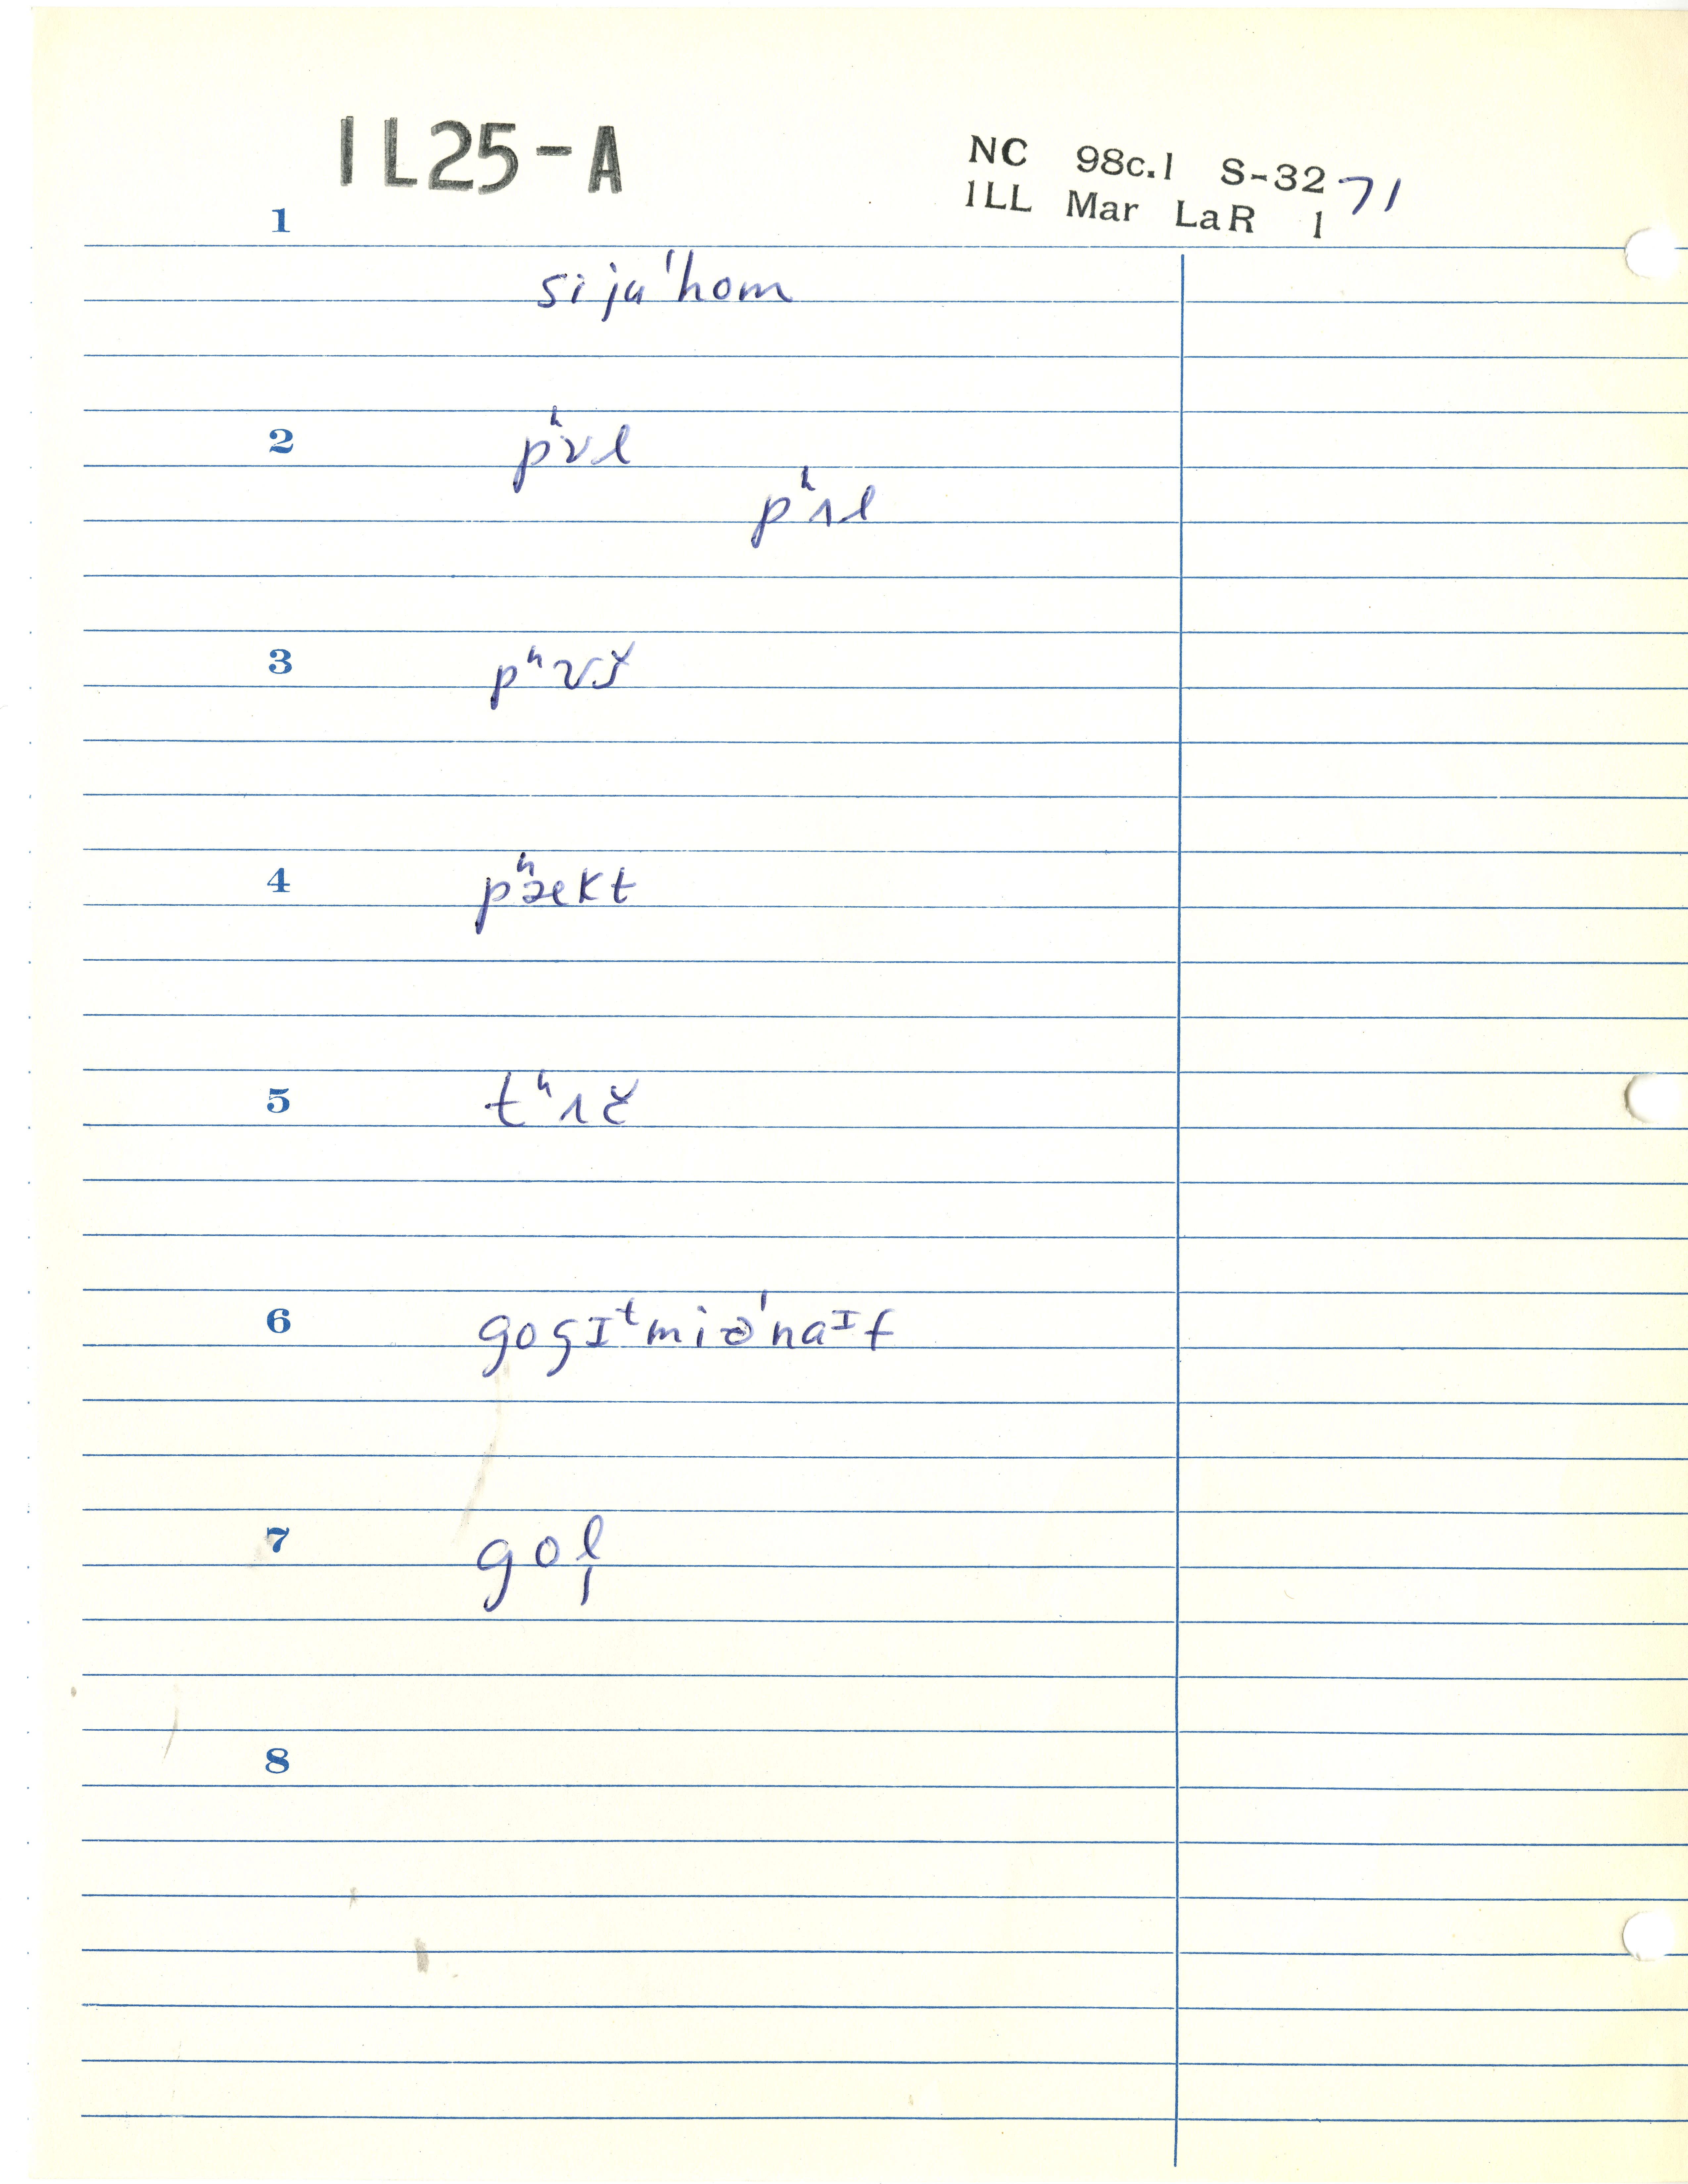 IL25-A
NC 98c.1 S-3271
ILL Mar LaR 1
1
si ju ˈhom
2
pʰʊl
pʰɪl
3
pʰʊš
4
pʰækt
5
tʰɪč
6
goɡɪᵗmiəˈnaᴵf
7
gol̩
8